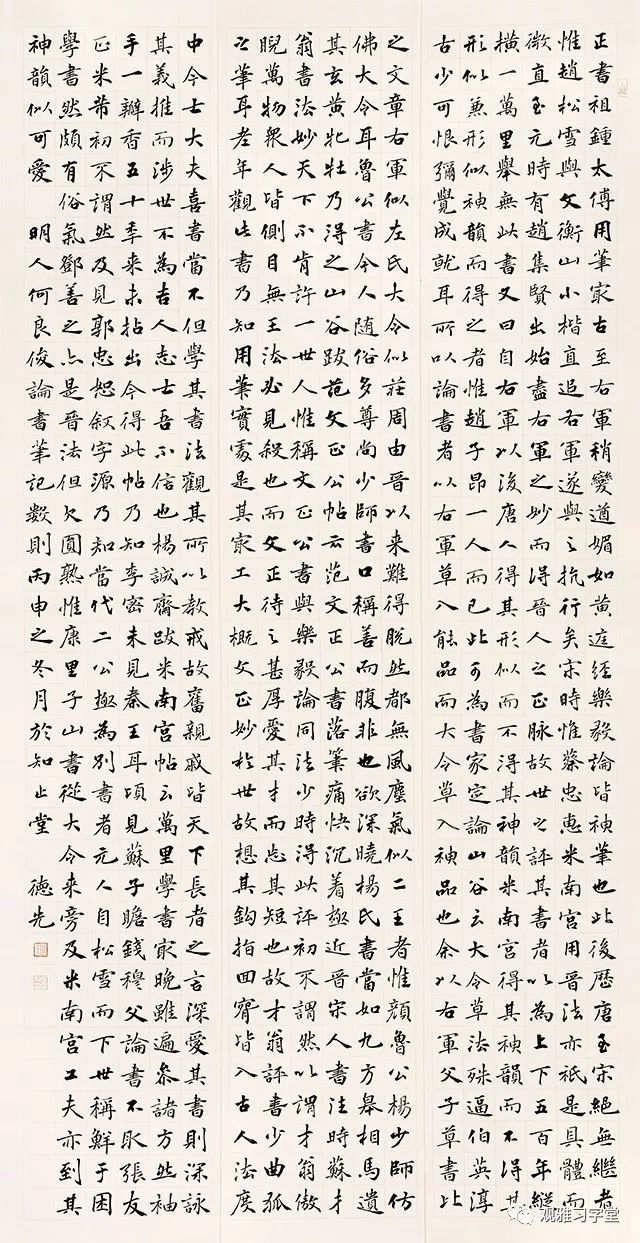 正書祖鍾太傅用筆冣古至右軍稍變遒媚如黄庭經樂毅論皆神筆也此後歴唐至宋絕無繼者
惟趙松雪與文衡山小楷直追右軍遂與之抗行矣宋時惟蔡忠惠米南宫用晉法亦祇是具體而
微直至元時有趙集賢出始盡右軍之妙而得晉人之正脉故世之評其書者以為上下五百年縱
横一萬里舉無此書又曰自右軍以後唐人得其形似而不得其神韻米南宫得其神韻而不得其
形似兼形似神韻而得之者惟趙子昂一人而已此可為書家定論山谷云大令草法殊逼伯英淳
古少可恨彌覺成就耳所以論書者以右軍草入能品而大令草入神品也余以右軍父子草書比
之文章右軍似左氏大令似莊周由晉以来難得脱然都無風塵氣似二王者惟顔魯公楊少師仿
佛大令耳魯公書今人随俗多尊尚少師書口稱善而腹非也欲深曉楊氏書當如九方皋相馬遺
其玄黄牝牡乃得之山谷跋范文正公帖云范文正公書落筆痛快沉着極近晉宋人書法時蘇才
翁書法妙天下不肯許一世人惟稱文正公書與樂毅論同法少時得此評初不謂然以謂才翁傲
睨萬物衆人皆側目無王法必見殺也而文正待之甚厚愛其才而忘其短也故才翁評書少曲狐
公筆耳老年觀此書乃知用筆實處是其冣工大概文正妙於世故想其鈎指回腕皆入古人法度
中今士大夫喜書當不但學其書法觀其所以教戒故舊親戚皆天下長者之言深愛其書則深詠
其義推而涉世不為吉人志士吾不信也楊誠齋跋米南宫帖云萬里學書冣晚雖遍參諸方然袖
手一瓣香五十年来未拈出今得此帖乃知李密未見秦王耳頃見蘇子瞻錢穆父論書不取張友
正米芾初不謂然及見郭忠恕叙字源乃知當代二公極為别書者元人自松雪而下世稱鮮于困
學書然頗有俗氣鄧善之亦是晉法但欠圓熟惟康里子山書從大令来旁及米南宫工夫亦到其
神韻似可愛 明人何良俊論書筆記數則丙申之冬月於知止堂 德先
观雅习字堂